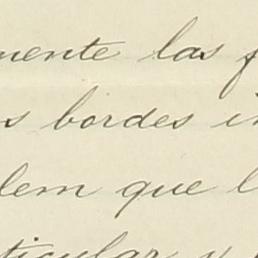 mente las f
s bordes i
dem que l
ticular y